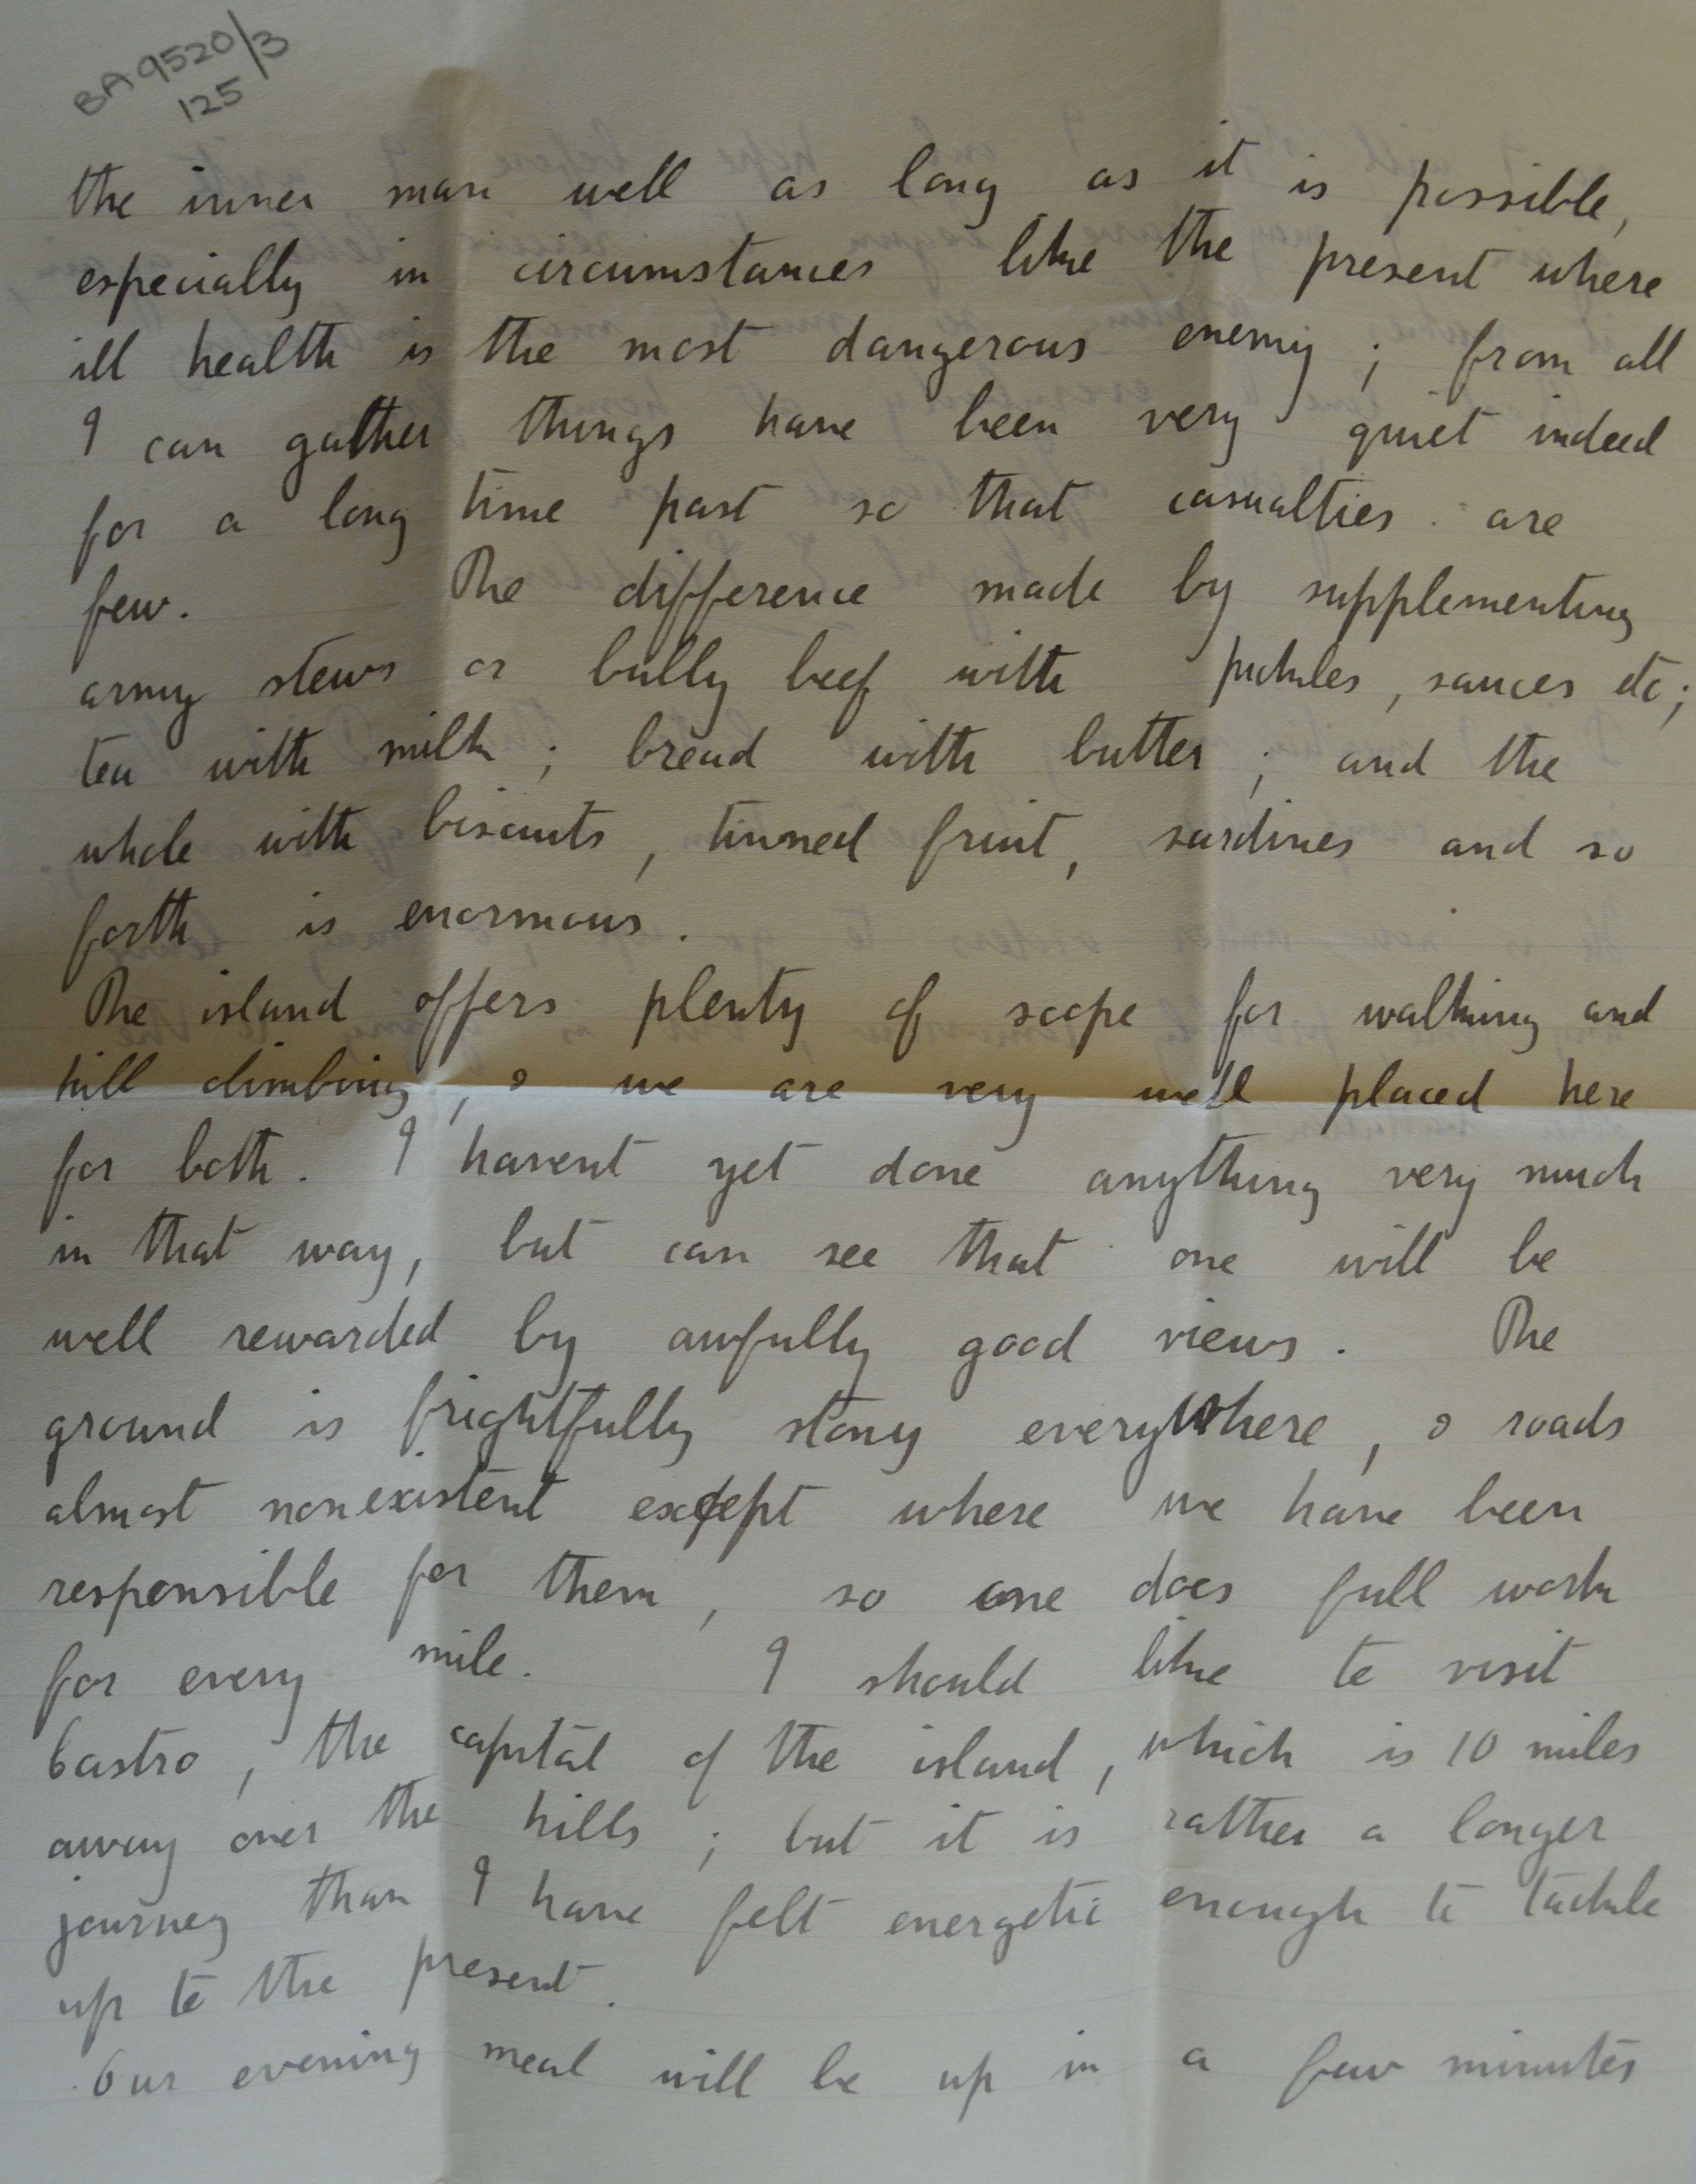 BA 9520/3
125
the inner man well as long as it is possible,
especially in circumstances like the present where
ill health is the most dangerous enemy ; from all
I can gather things have been very quiet indeed
for a long time past so that casualties are
few. The difference made by supplementing
army stews or bully beef with pickles, sauces etc ;
tea with milk ; bread with butter ; and the
whole with biscuits, tinned fruit, sardines and so
forth is enormous.
The island offers plenty of scope for walking and
hill climbing, & we are very well placed here
for both. I havent yet done anything very much
in that way, but can see that one will be
well rewarded by awfully good views. The
ground is frightfully stony everywhere, & roads
almost nonexistent except where we have been
responsible for them, so one does full work
for every mile. I should like to visit
Castro, the capital of the island, which is 10 miles
away over the hills ; but it is rather a longer
journey than I have felt energetic enough to tackle
up to the present.
Our evening meal will be up in a few minutes